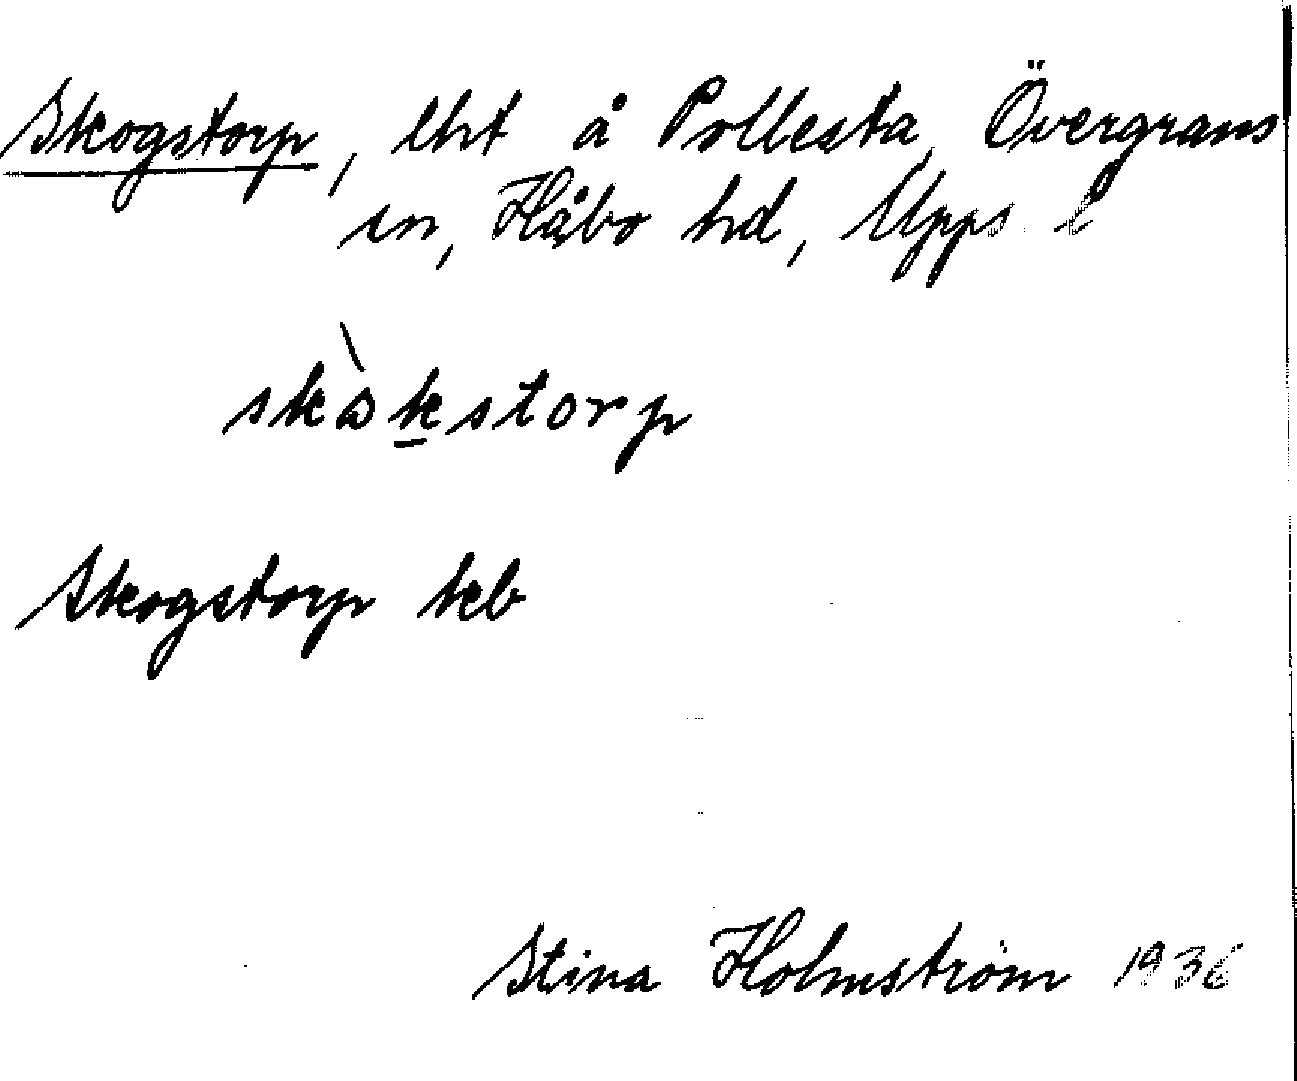 Skogstorp, lht å Pollesta, Övergrans
sn, Håbo hd, Upps l
skòkstorp
Skogstorp kb
Stina Holmström 1936